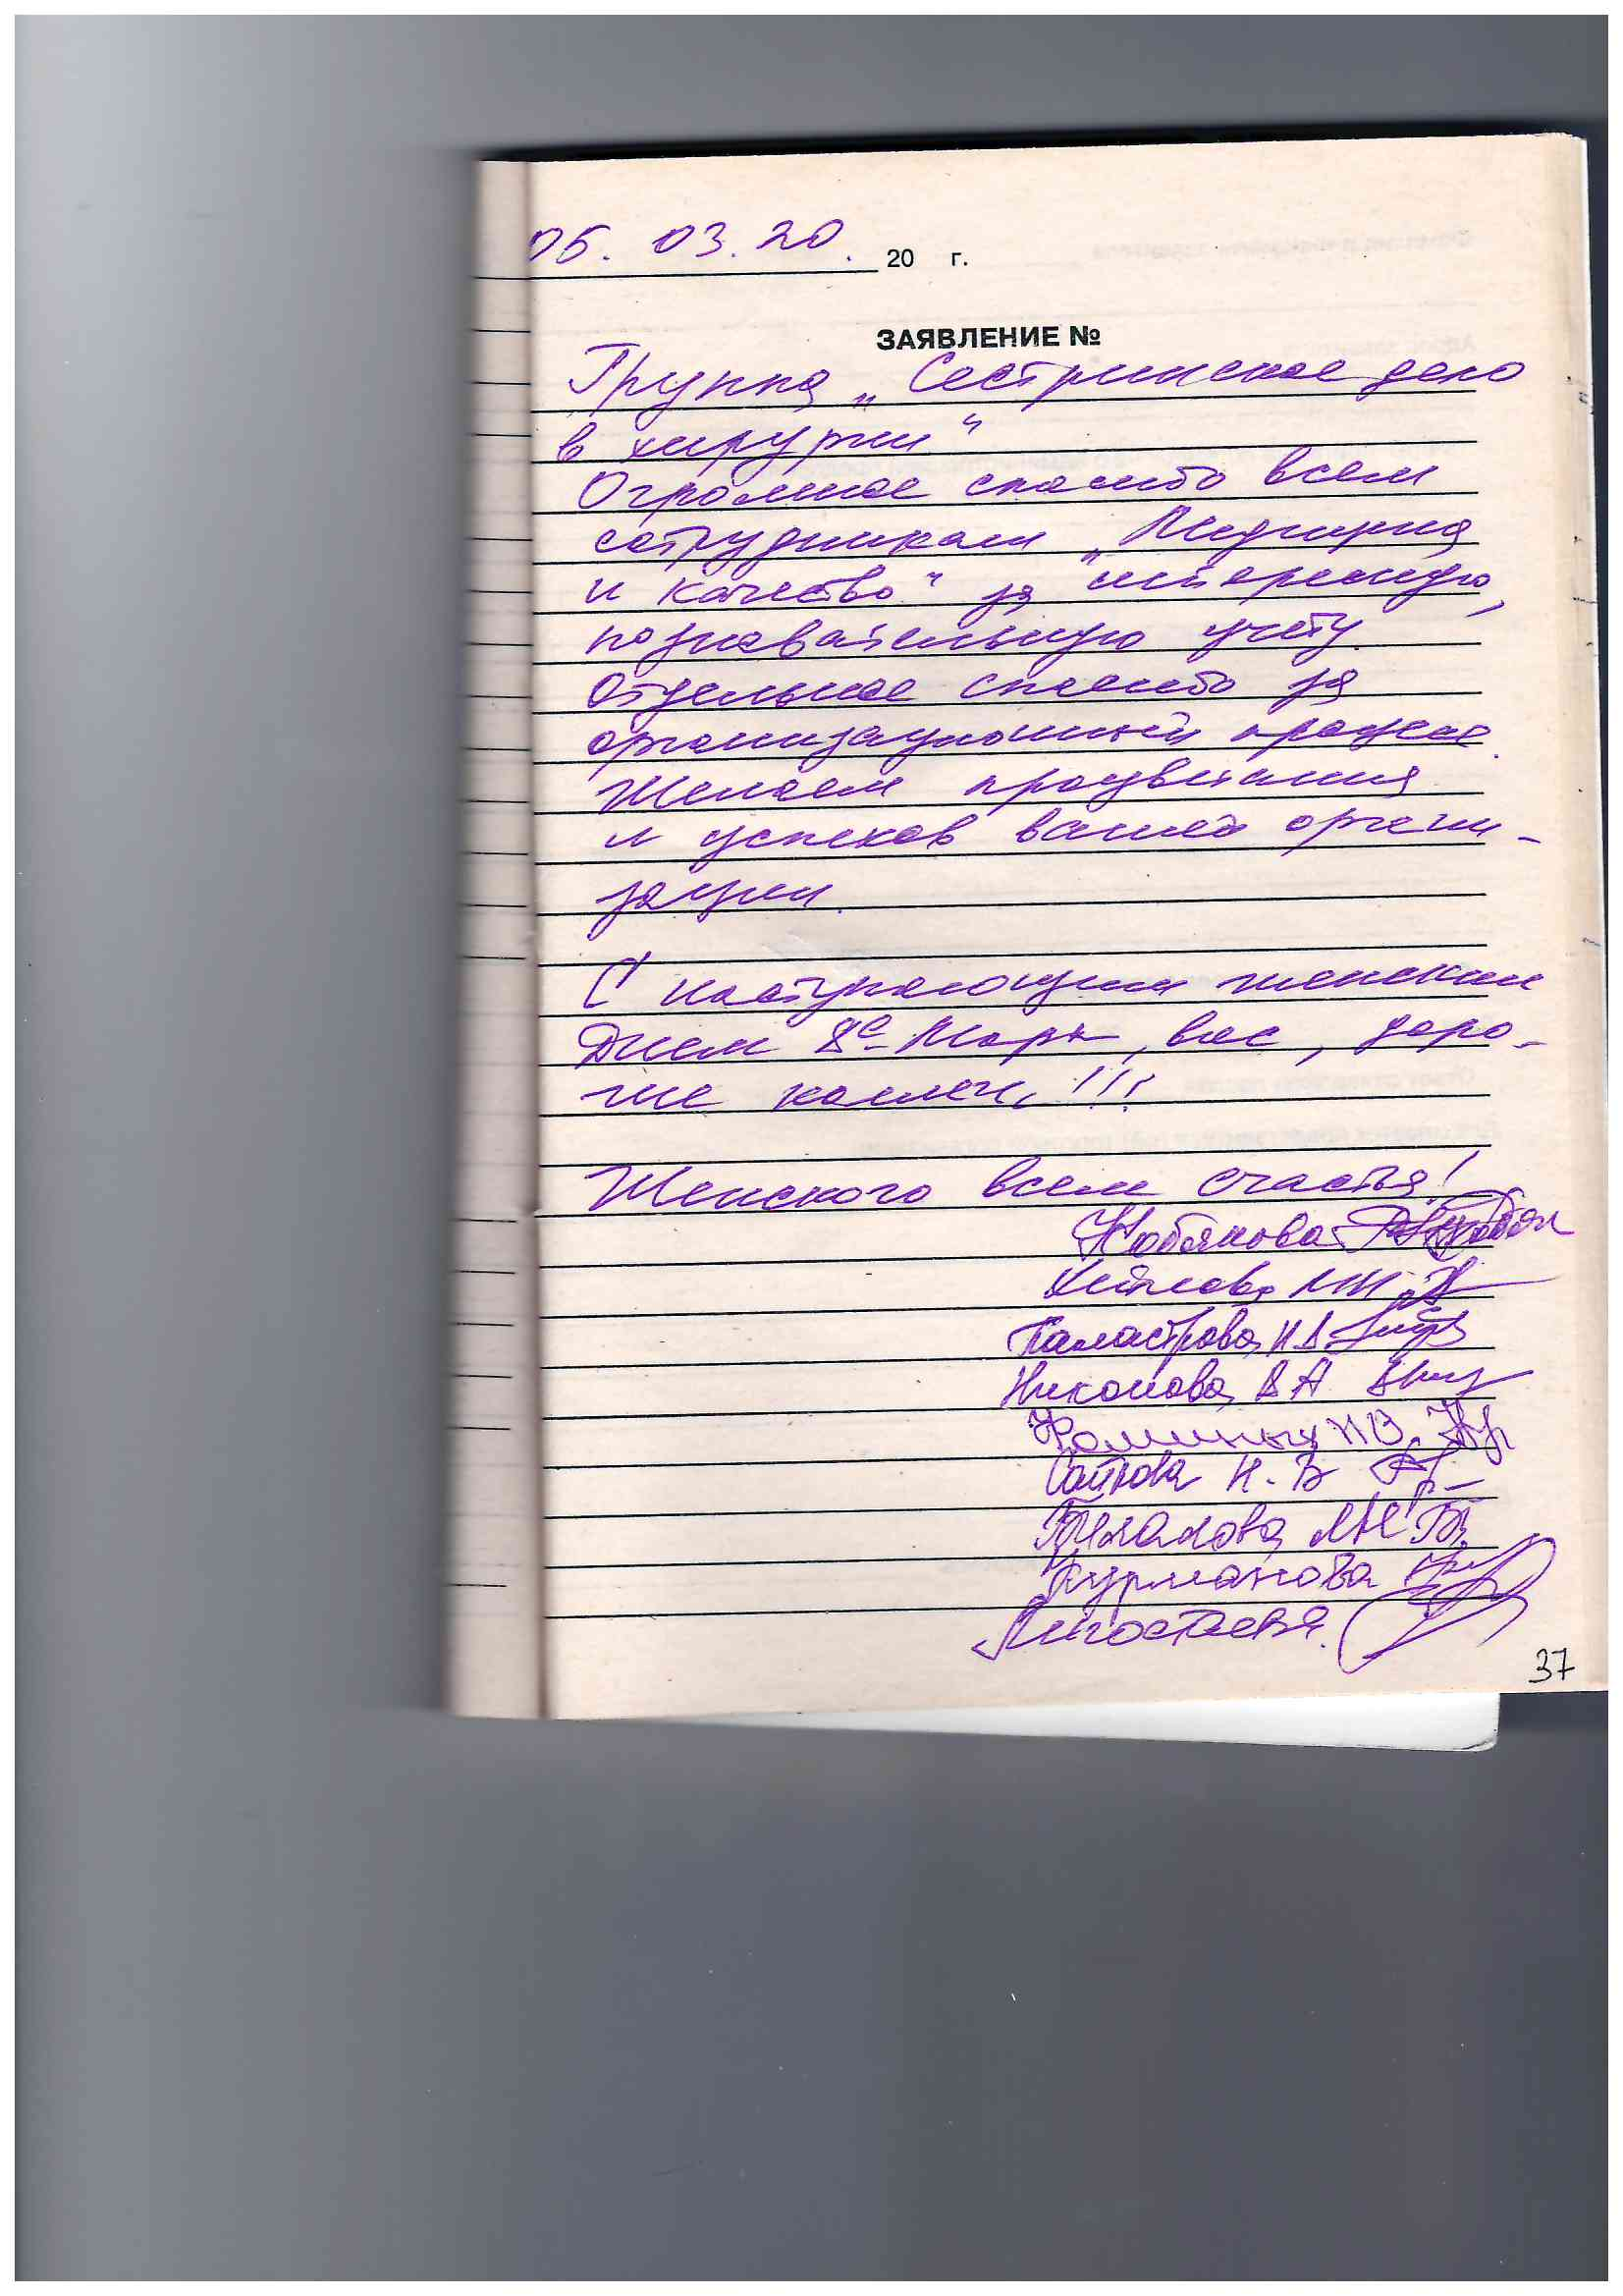 05. 03. 20. 20 г.
ЗАЯВЛЕНИЕ №
Группа „Сестринское дело
в хирургии“
Огромное спасибо всем
сотрудникам „Медицина
и качество“ за интересную,
познавательную учёбу.
Отдельное спасибо за
организационный процесс.
Желаем процветания
и успехов вашей органи-
зации.
С наступающим женским
Днем 8е Марта, вас, доро-
гие коллеги!!!
Женского всем счастья!
Кобякова
Паластрова
Никонова В А
Фоминых Н В.
Н. В
Курманова
37